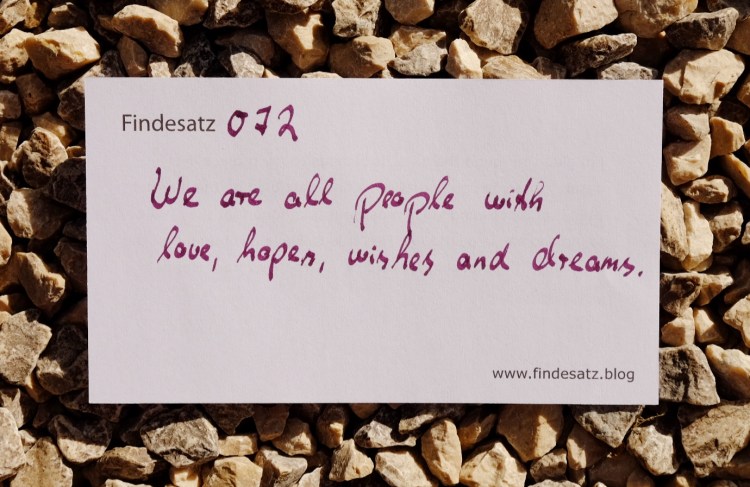 Findesatz 072
We are all people with
love, hopes, wishes and dreams.
www.findesatz.blog